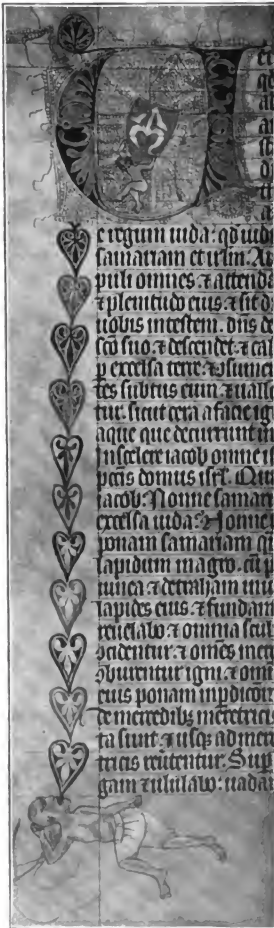 e regum iuda: qd uidi
samariam et irlm. Au
puli omnes. ⁊ attenda
⁊ plenitudo eius ⁊ sit d
uobis in testem. dns de
sco suo. ⁊ descendet. ⁊ cal
p excelsa terre. ⁊ osumen
tes subtus eum. ⁊ ualle
tur. sicut cera a facie ig
aque que decurrunt in
In scelere iacob omne is
pctis domus isrl. Qui
iacob: Nonne samari
excelsa iuda: Nonne
ponam samariam q
lapidum in agro. cu p
uinea ⁊ detraham in u
lapides eius. ⁊ fundam
reuelabo ⁊ omnia scul
ocidentur. ⁊ omes merc
oburentur igni. ⁊ omi
eius ponam in pdicom
de mercedib; meretricis
ta sunt. ⁊ usq; ad mer
tricis reutentur. Sup
gam ⁊ ululabo: uada